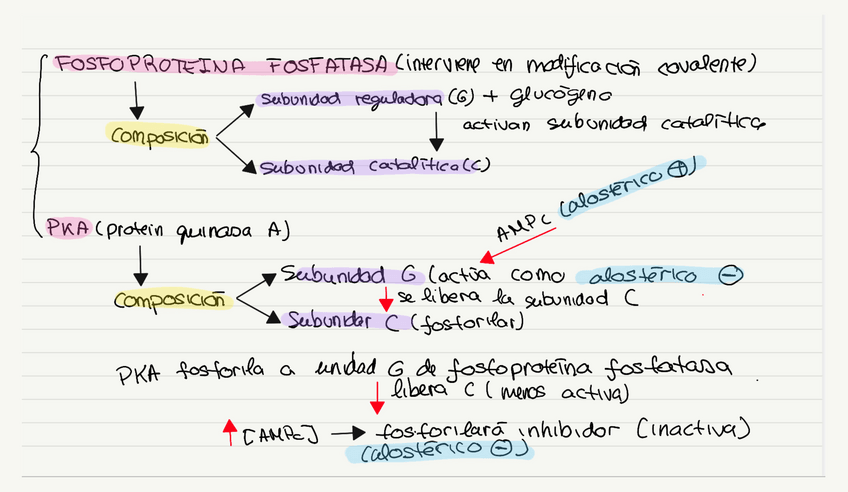 FOSFOPROTEINA FOSFATASA (interviene en modificación covalente)
Subunidad reguladora (G) + glucógeno
activan subunidad catalítica
Composición
Subunidad catalítica (C)
AMPc (alostérico +)
PKA (protein quinasa A)
Subunidad G (actúa como alostérico -)
se libera la subunidad C
Composición
Subunidar C (fosforilar)
PKA fosforila a unidad G de fosfoproteína fosfatasa
libera C (menos activa)
↑ [AMPc] → fosforilará inhibidor (inactiva)
(alostérico -)